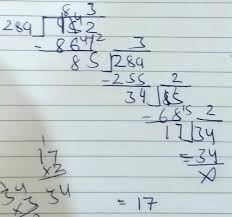 3
289 ) 952
= 867
3
85 ) 289
= 255
2
34 ) 85
= 68
2
17 ) 34
= 34
17
×2
34
34
×3
= 17